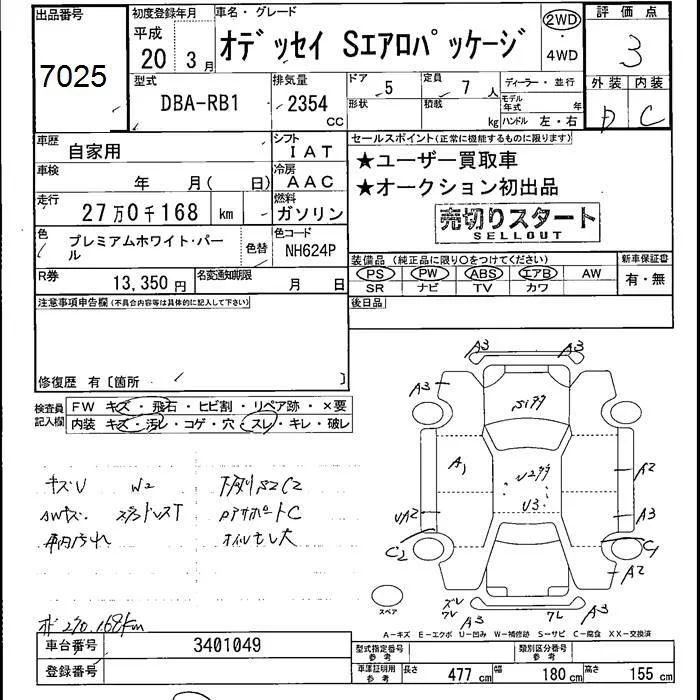 出品番号
7025
初度登録年月
平成
20 3月
車名・グレード
オデッセイ Sエアロパッケージ
2WD
・
4WD
評価点
3
外装 内装
D C
型式
DBA-RB1
排気量
2354
CC
ドア
5
定員
7人
ディーラー・並行
形状
積載
kg
モデル年式
年
ハンドル 左・右
車歴
自家用
シフト
IAT
車検
年 月( 日)
冷房
AAC
走行
27万0千168 km
燃料
ガソリン
色
プレミアムホワイト・パール
色替
色コード
NH624P
R券
13,350円
名変通知期限
月 日
セールスポイント(正常に機能するものに限ります)
★ユーザー買取車
★オークション初出品
売切りスタート
SELLOUT
装備品 (純正品に限り○をつけてください)
新車保証書
PS PW ABS エアB AW
SR ナビ TV カワ
有・無
後日品
注意事項申告欄(不具合内容等は具体的に記入して下さい)
修復歴 有〔箇所 〕
検査員
記入欄
FW キズ・飛石・ヒビ割・リペア跡・×要
内装 キズ・汚レ・コゲ・穴・スレ・キレ・破レ
キズU W2
下廻りS2C2
AWキズ スタッドレスT
車内汚れ
オイルもレ大
A3 A3
A3
A1
U3
UA2
A2
A3
C2
C1
A2
スペア
A3
A3
A-キズ E-エクボ U-凹み W-補修跡 S-サビ C-腐食 XX-交換済
車台番号
3401049
登録番号
型式指定番号
参考
類別区分番号
参考
車庫証明用
参考
長さ 477 cm 幅 180 cm 高さ 155 cm